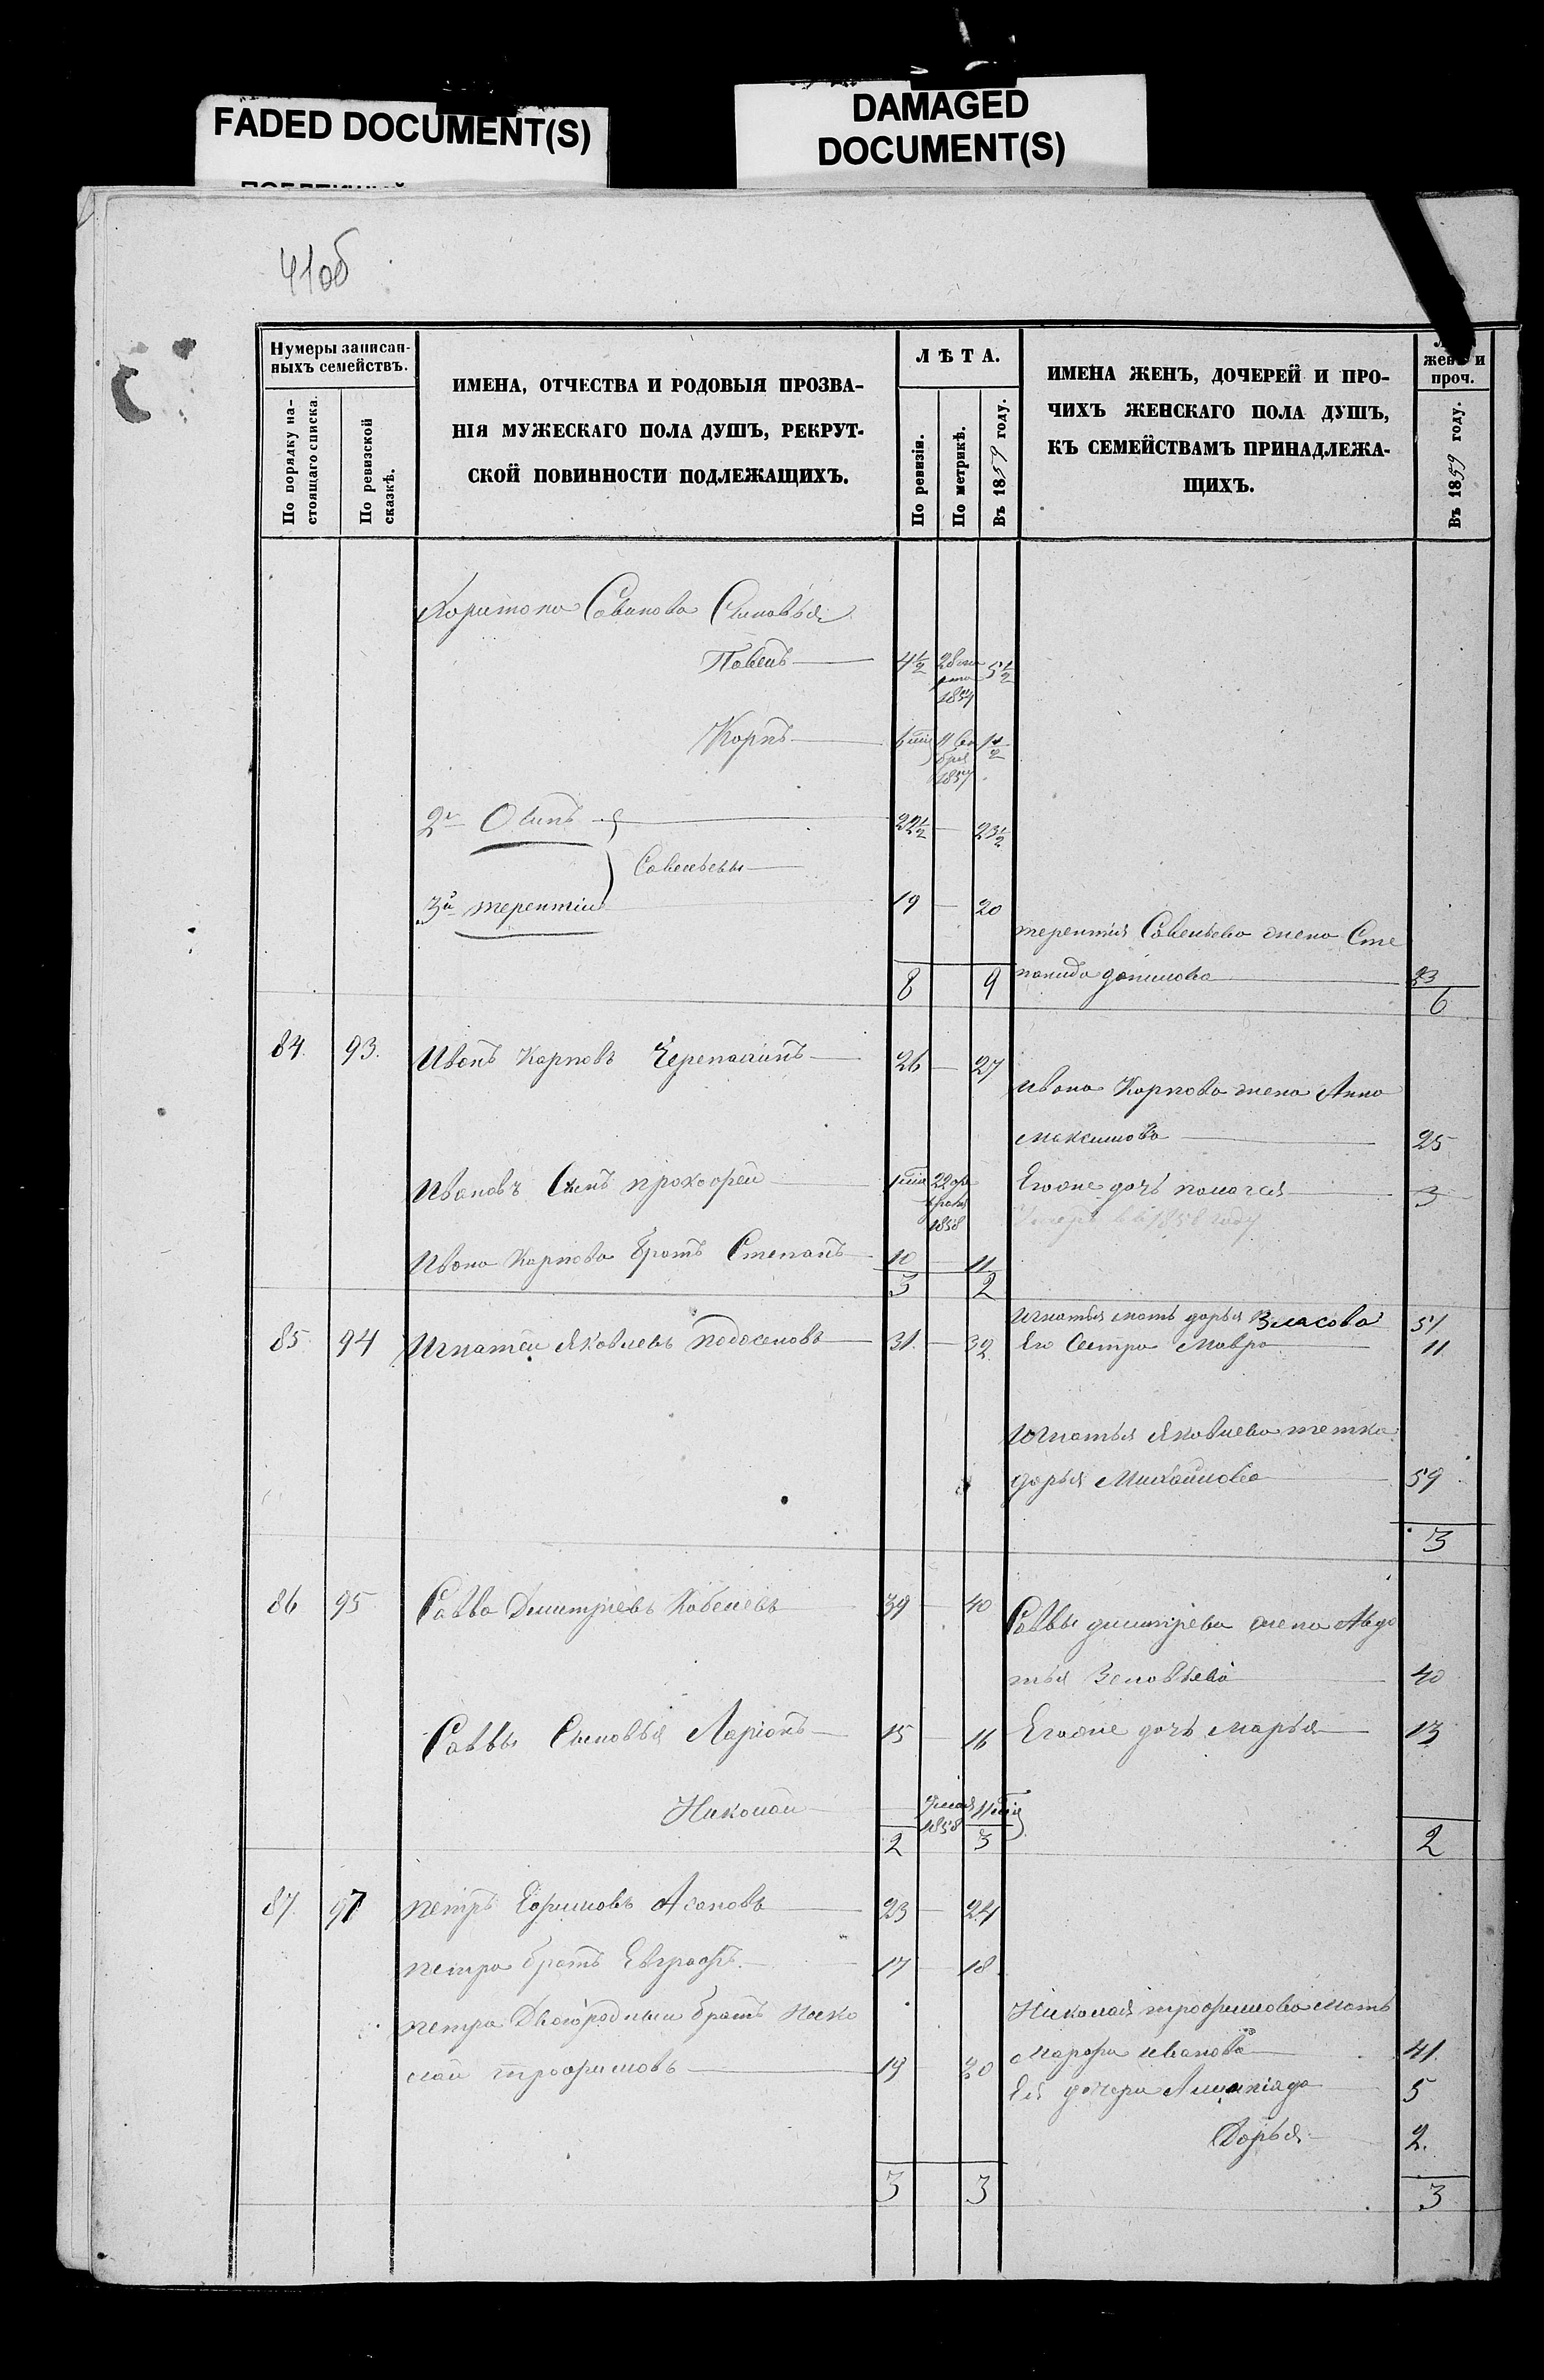 FADED DOCUMENT(S)
DAMAGED
DOCUMENT(S)
41об
Нумеры записан-
ныхъ семействъ.
По порядку на-
стоящаго списка.
По ревизской
сказкѣ.
ИМЕНА, ОТЧЕСТВА И РОДОВЫЯ ПРОЗВА-
НІЯ МУЖЕСКАГО ПОЛА ДУШЪ, РЕКРУТ-
СКОЙ ПОВИННОСТИ ПОДЛЕЖАЩИХЪ.
ЛѢТА.
По ревизіи.
По метрикѣ.
Въ 1859 году.
ИМЕНА ЖЕНЪ, ДОЧЕРЕЙ И ПРО-
ЧИХЪ ЖЕНСКАГО ПОЛА ДУШЪ,
КЪ СЕМЕЙСТВАМЪ ПРИНАДЛЕЖА-
ЩИХЪ.
женъ и
проч.
Въ 1859 году.
Харитона Савинова Сыновья
Павелъ 4½ 28 1854 5½
Карпъ 11 1857 1½
2й Осипъ 22½ 23½
Савельевы
3й терентіи 19 20
терентія Савельева жена Сте
панида данилова 23
8 9 6
84. 93. Иванъ Карповъ Черепахинъ 26 27
Ивана Карпова жена Анна
максимова 25
Ивановъ Сынъ прохофей 22 февраля 1858
Егоже дочь палагея 3
Умеръ въ 1858 году
Ивана Карпова братъ Степанъ 10 11
3 2
Игнатья мать дарья Власова 51
85 94 Игнатеи Яковлевъ подосеновъ 31. 32
Его Сестра Мавра 11
Игнатья Яковлева тетка
дарья Михайлова 59
3
86 95 Савва Дмитріевъ Кобелевъ 39 40
Саввы дмитрева жена Авдо
тья Зеновьева 40
Саввы Сыновья Ларіонъ 15 16
Егоже дочь марья 13
Николаи 9 мая 1858
2 3 2
87. 97 петръ Ефимовъ Асановъ 23 24
петра братъ Евграфъ 17 18
петра Двоюродныи братъ Нико
лаи трофимовъ 19 20
Николая трофимова мать
Марфа иванова 41.
Ея дочери 5
Дарья 2.
3 3 3